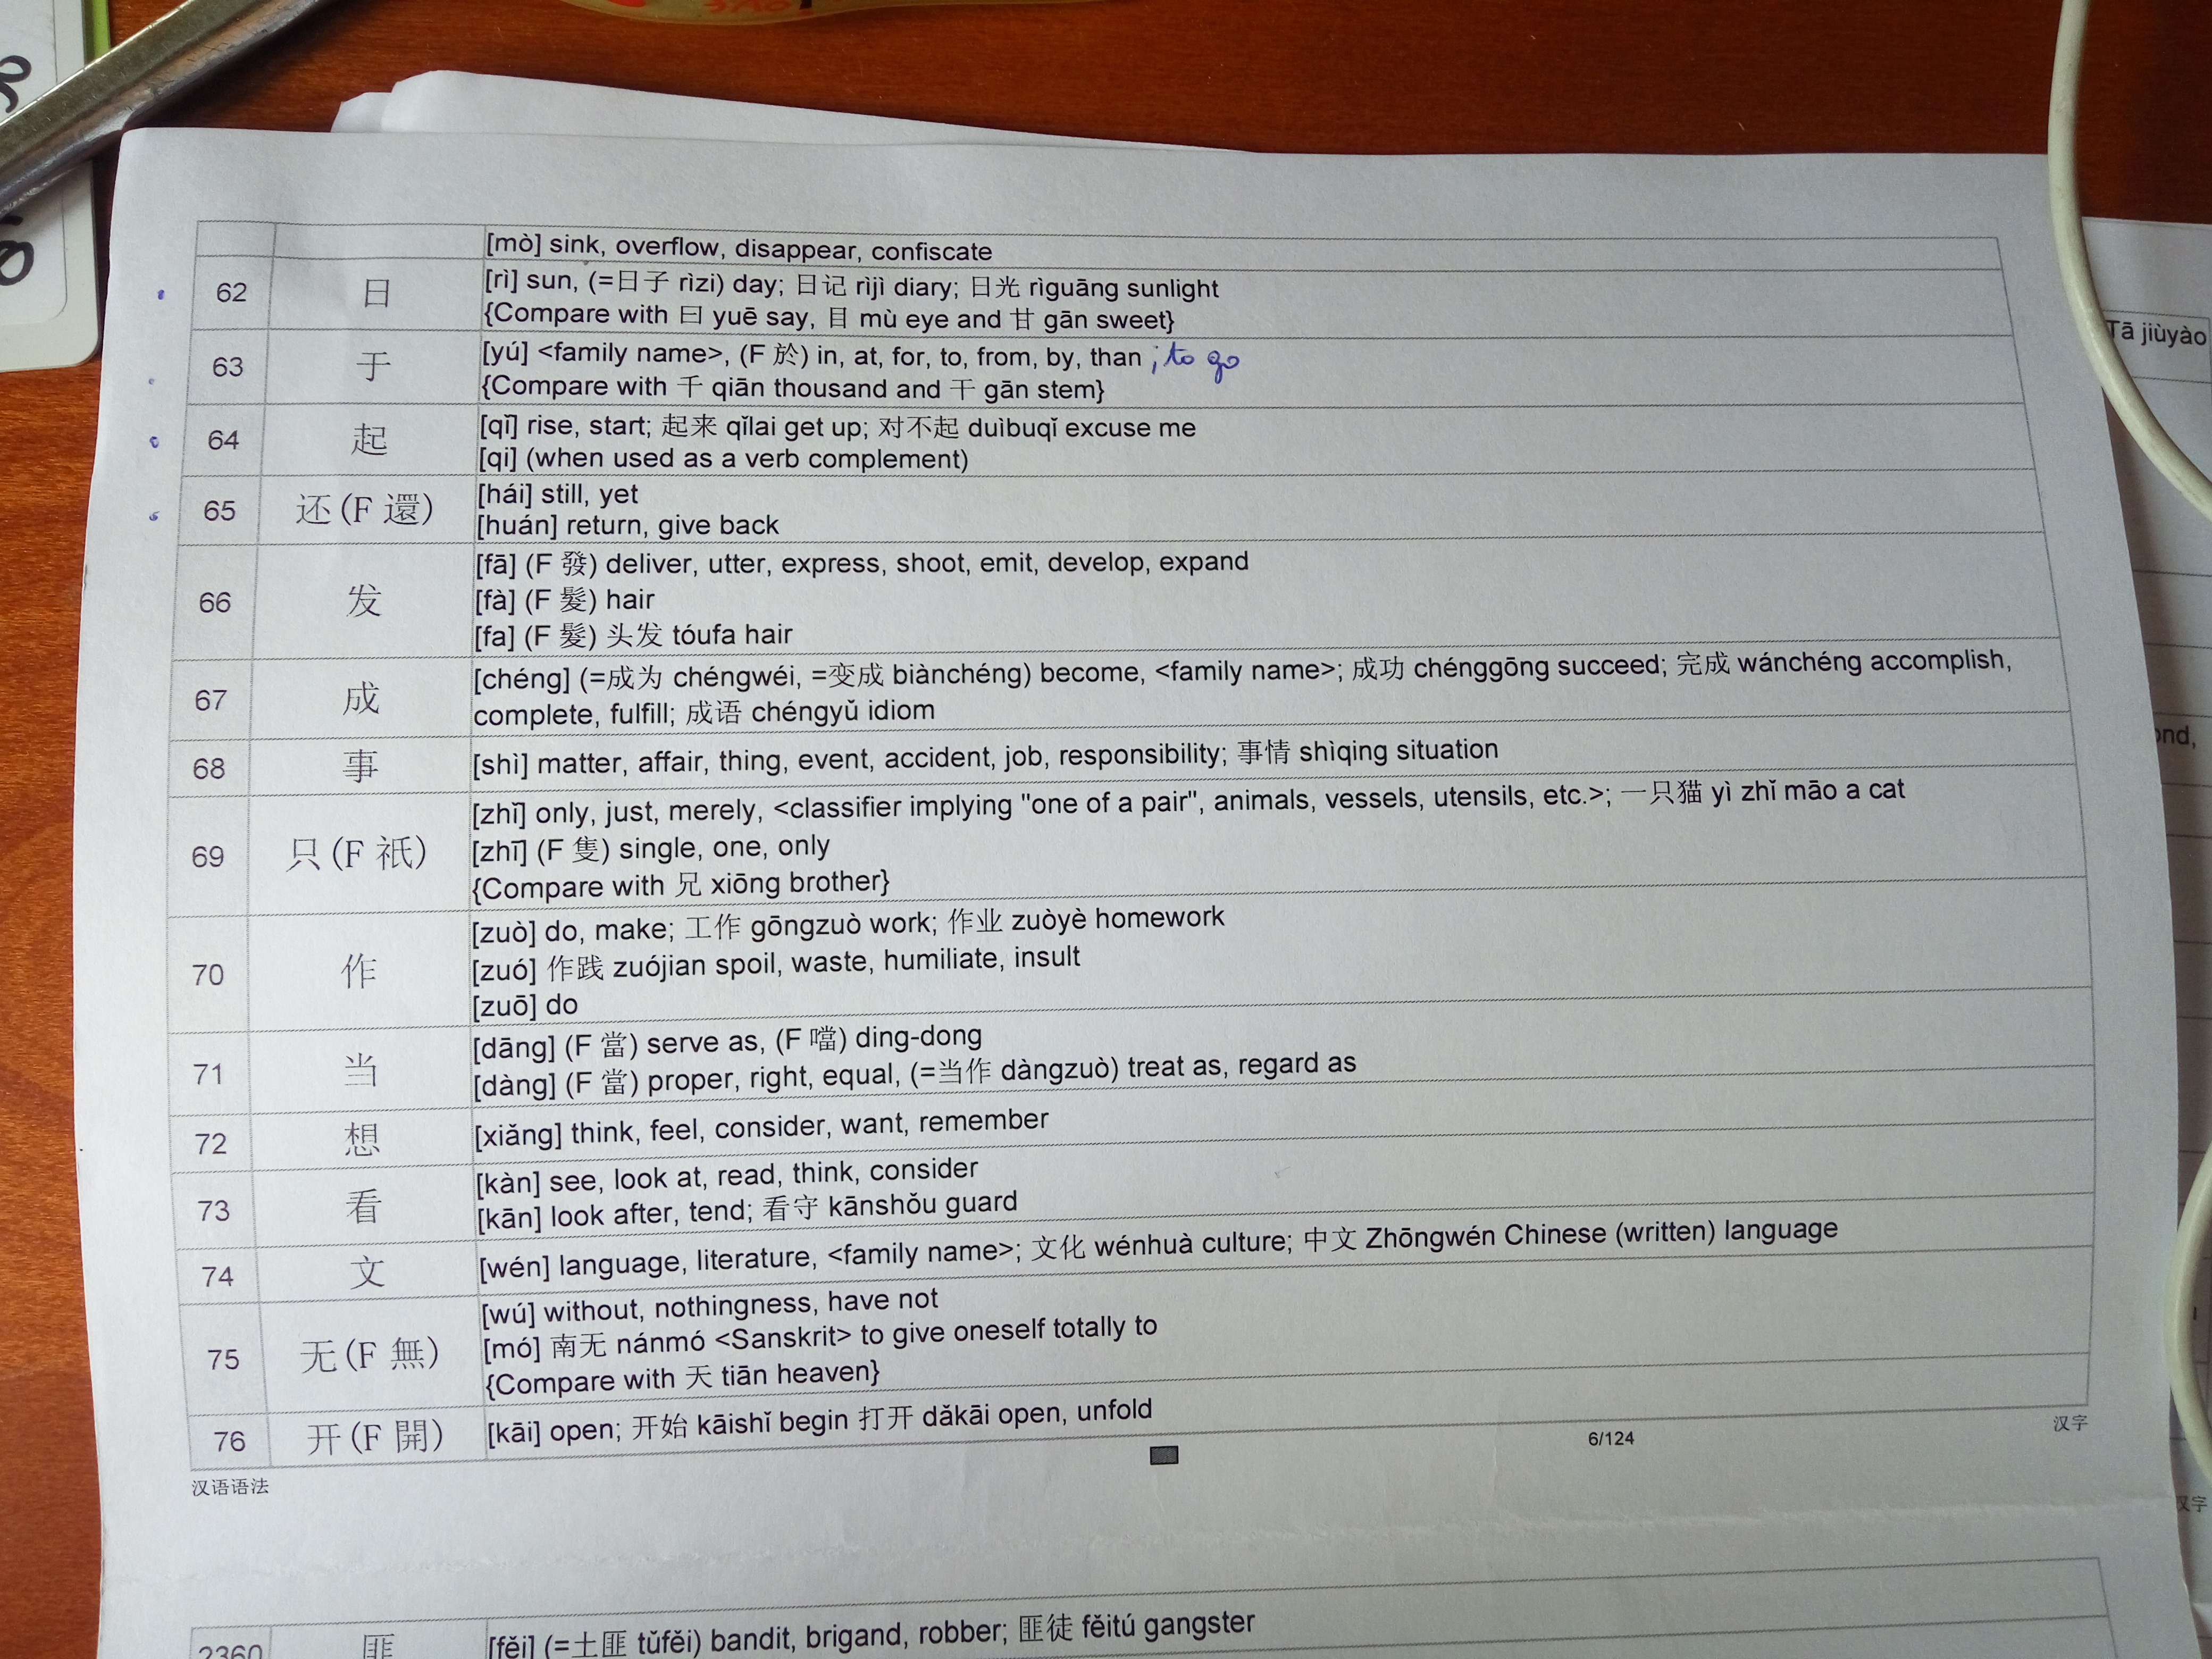 [mò] sink, overflow, disappear, confiscate
62 日 [rì] sun, (=日子 rìzi) day; 日记 rìjì diary; 日光 rìguāng sunlight
{Compare with 曰 yuē say, 目 mù eye and 甘 gān sweet}
63 于 [yú] <family name>, (F 於) in, at, for, to, from, by, than ; to go
{Compare with 千 qiān thousand and 干 gān stem}
64 起 [qǐ] rise, start; 起来 qǐlai get up; 对不起 duìbuqǐ excuse me
[qi] (when used as a verb complement)
65 还 (F 還) [hái] still, yet
[huán] return, give back
66 发 [fā] (F 發) deliver, utter, express, shoot, emit, develop, expand
[fà] (F 髮) hair
[fa] (F 髮) 头发 tóufa hair
67 成 [chéng] (=成为 chéngwéi, =变成 biànchéng) become, <family name>; 成功 chénggōng succeed; 完成 wánchéng accomplish,
complete, fulfill; 成语 chéngyǔ idiom
68 事 [shì] matter, affair, thing, event, accident, job, responsibility; 事情 shìqing situation
69 只 (F 祇) [zhǐ] only, just, merely, <classifier implying "one of a pair", animals, vessels, utensils, etc.>; 一只猫 yì zhǐ māo a cat
[zhī] (F 隻) single, one, only
{Compare with 兄 xiōng brother}
70 作 [zuò] do, make; 工作 gōngzuò work; 作业 zuòyè homework
[zuó] 作践 zuójian spoil, waste, humiliate, insult
[zuō] do
71 当 [dāng] (F 當) serve as, (F 噹) ding-dong
[dàng] (F 當) proper, right, equal, (=当作 dàngzuò) treat as, regard as
72 想 [xiǎng] think, feel, consider, want, remember
73 看 [kàn] see, look at, read, think, consider
[kān] look after, tend; 看守 kānshǒu guard
74 文 [wén] language, literature, <family name>; 文化 wénhuà culture; 中文 Zhōngwén Chinese (written) language
75 无 (F 無) [wú] without, nothingness, have not
[mó] 南无 nánmó <Sanskrit> to give oneself totally to
{Compare with 天 tiān heaven}
76 开 (F 開) [kāi] open; 开始 kāishǐ begin 打开 dǎkāi open, unfold
汉语语法 6/124 汉字
2360 匪 [fěi] (=土匪 tǔfěi) bandit, brigand, robber; 匪徒 fěitú gangster
Tā jiùyào
ond,
汉字